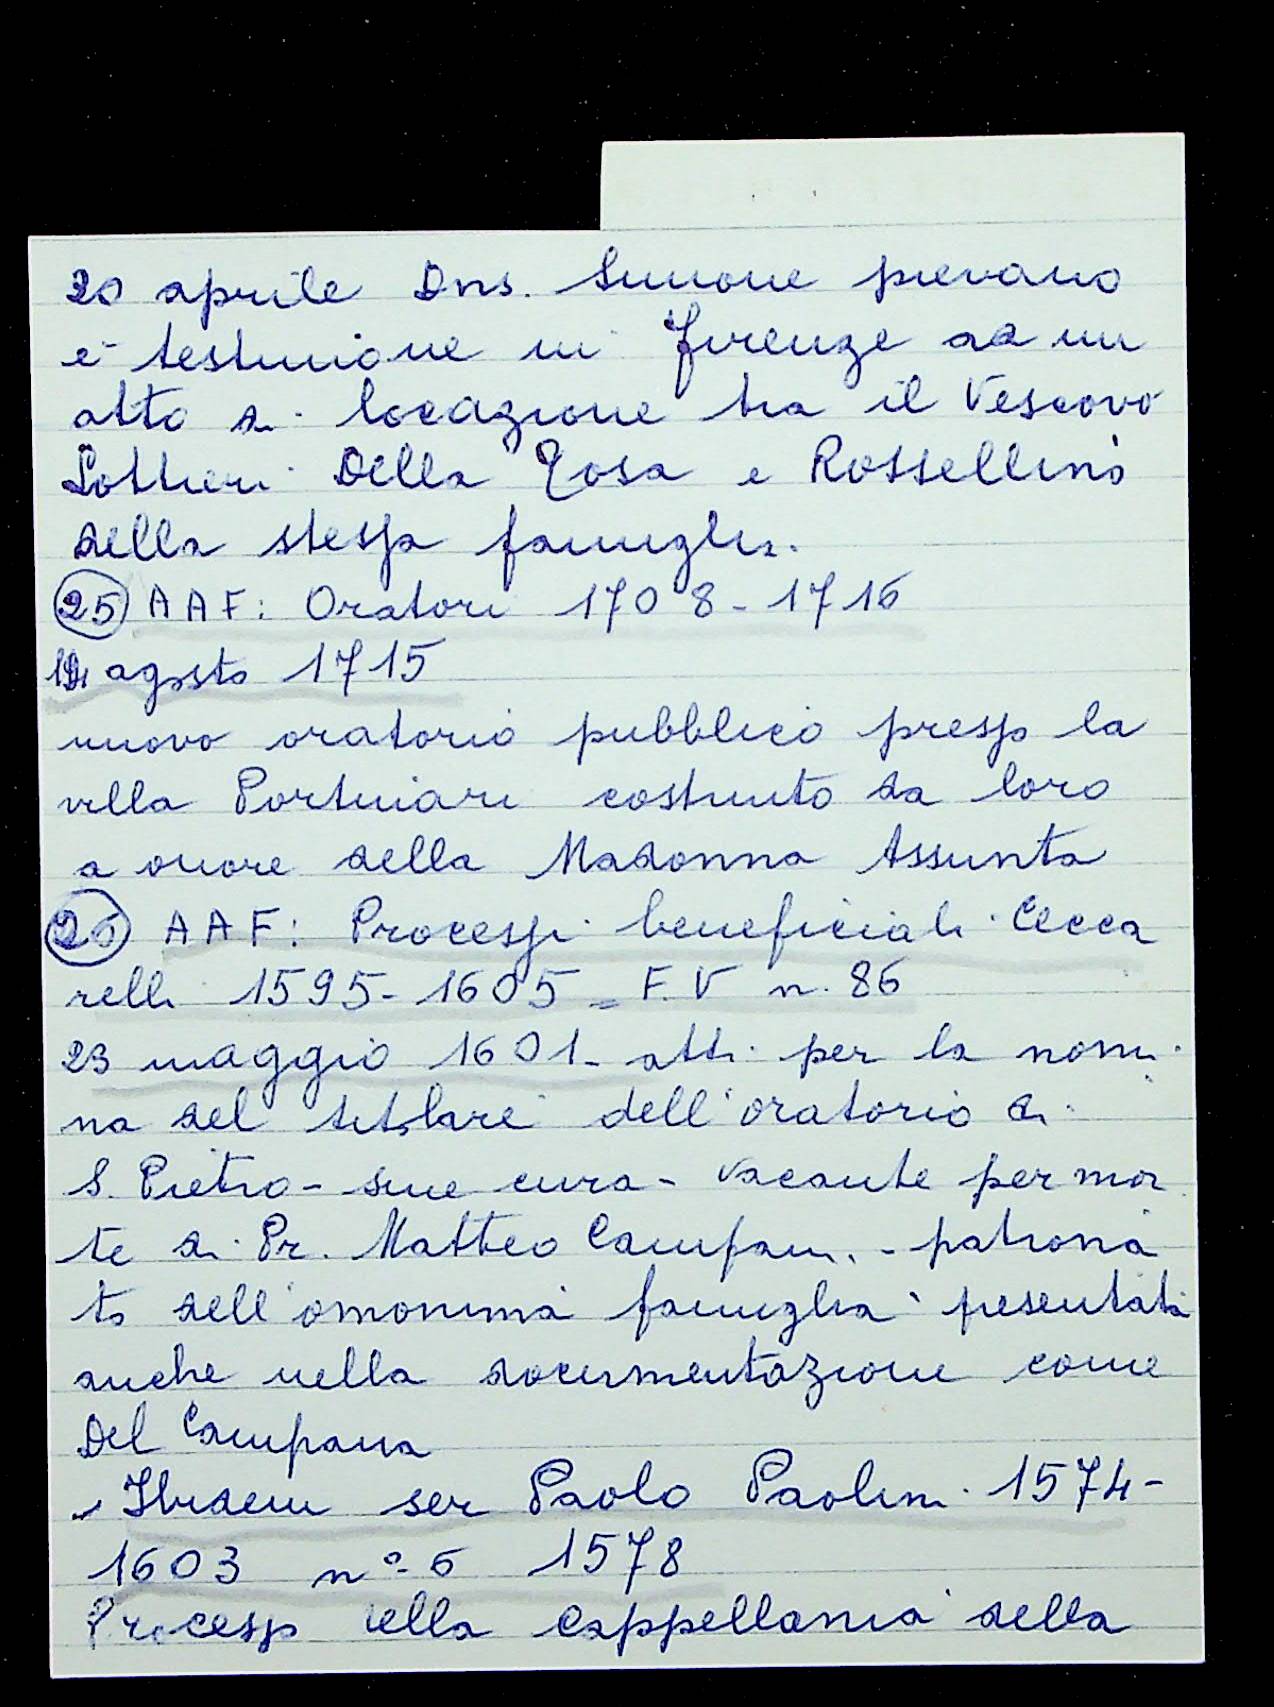 20 aprile Dns. Simone pievano
è testimone in Firenze ad un
atto di locazione tra il Vescovo
Lottieri Della Tosa e Rossellino
della stessa famiglia.
25 AAF: Oratori 1708-1716
agosto 1715
nuovo oratorio pubblico presso la
villa Portinari costruito da loro
a onore della Madonna Assunta
26 AAF: Processi beneficiali Cecca
relli 1595-1605 = F.V n. 86
23 maggio 1601 - atti per la nomi
na del titolare dell'oratorio di
S. Pietro - sine cura - vacante per mor
te di Pr. Matteo Campani. - patrona
to dell'omonima famiglia presentata
anche nella documentazione come
Del Campana
- Ibidem ser Paolo Paolini 1574-
1603 n° 6 1578
Processo della cappellania della